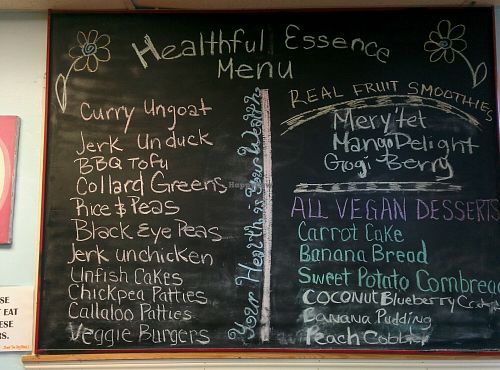 Healthful Essence
Menu
Curry Ungoat
Jerk Unduck
BBQ Tofu
Collard Greens
Rice & Peas
Black Eye Peas
Jerk unchicken
Unfish Cakes
Chickpea Patties
Callaloo Patties
Veggie Burgers
Your Health is Your Wealth
REAL FRUIT SMOOTHIES
Mery tet
Mango Delight
Gogi Berry
ALL VEGAN DESSERTS
Carrot Cake
Banana Bread
Sweet Potato Cornbread
Coconut Blueberry
Banana Pudding
Peach Cobbler
SE
EAT
ESE
RS.